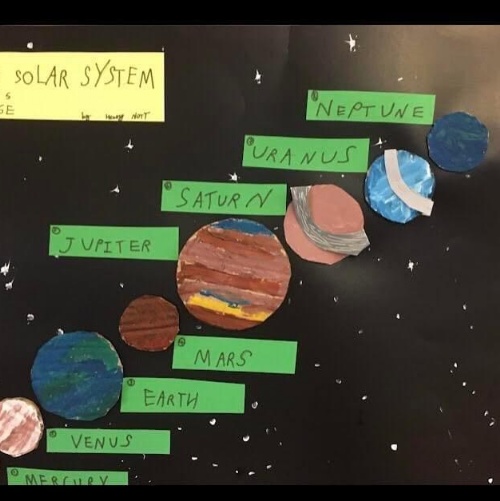 SOLAR SYSTEM
S
GE
by
NEPTUNE
URANUS
SATURN
JUPITER
MARS
EARTH
VENUS
MERCURY